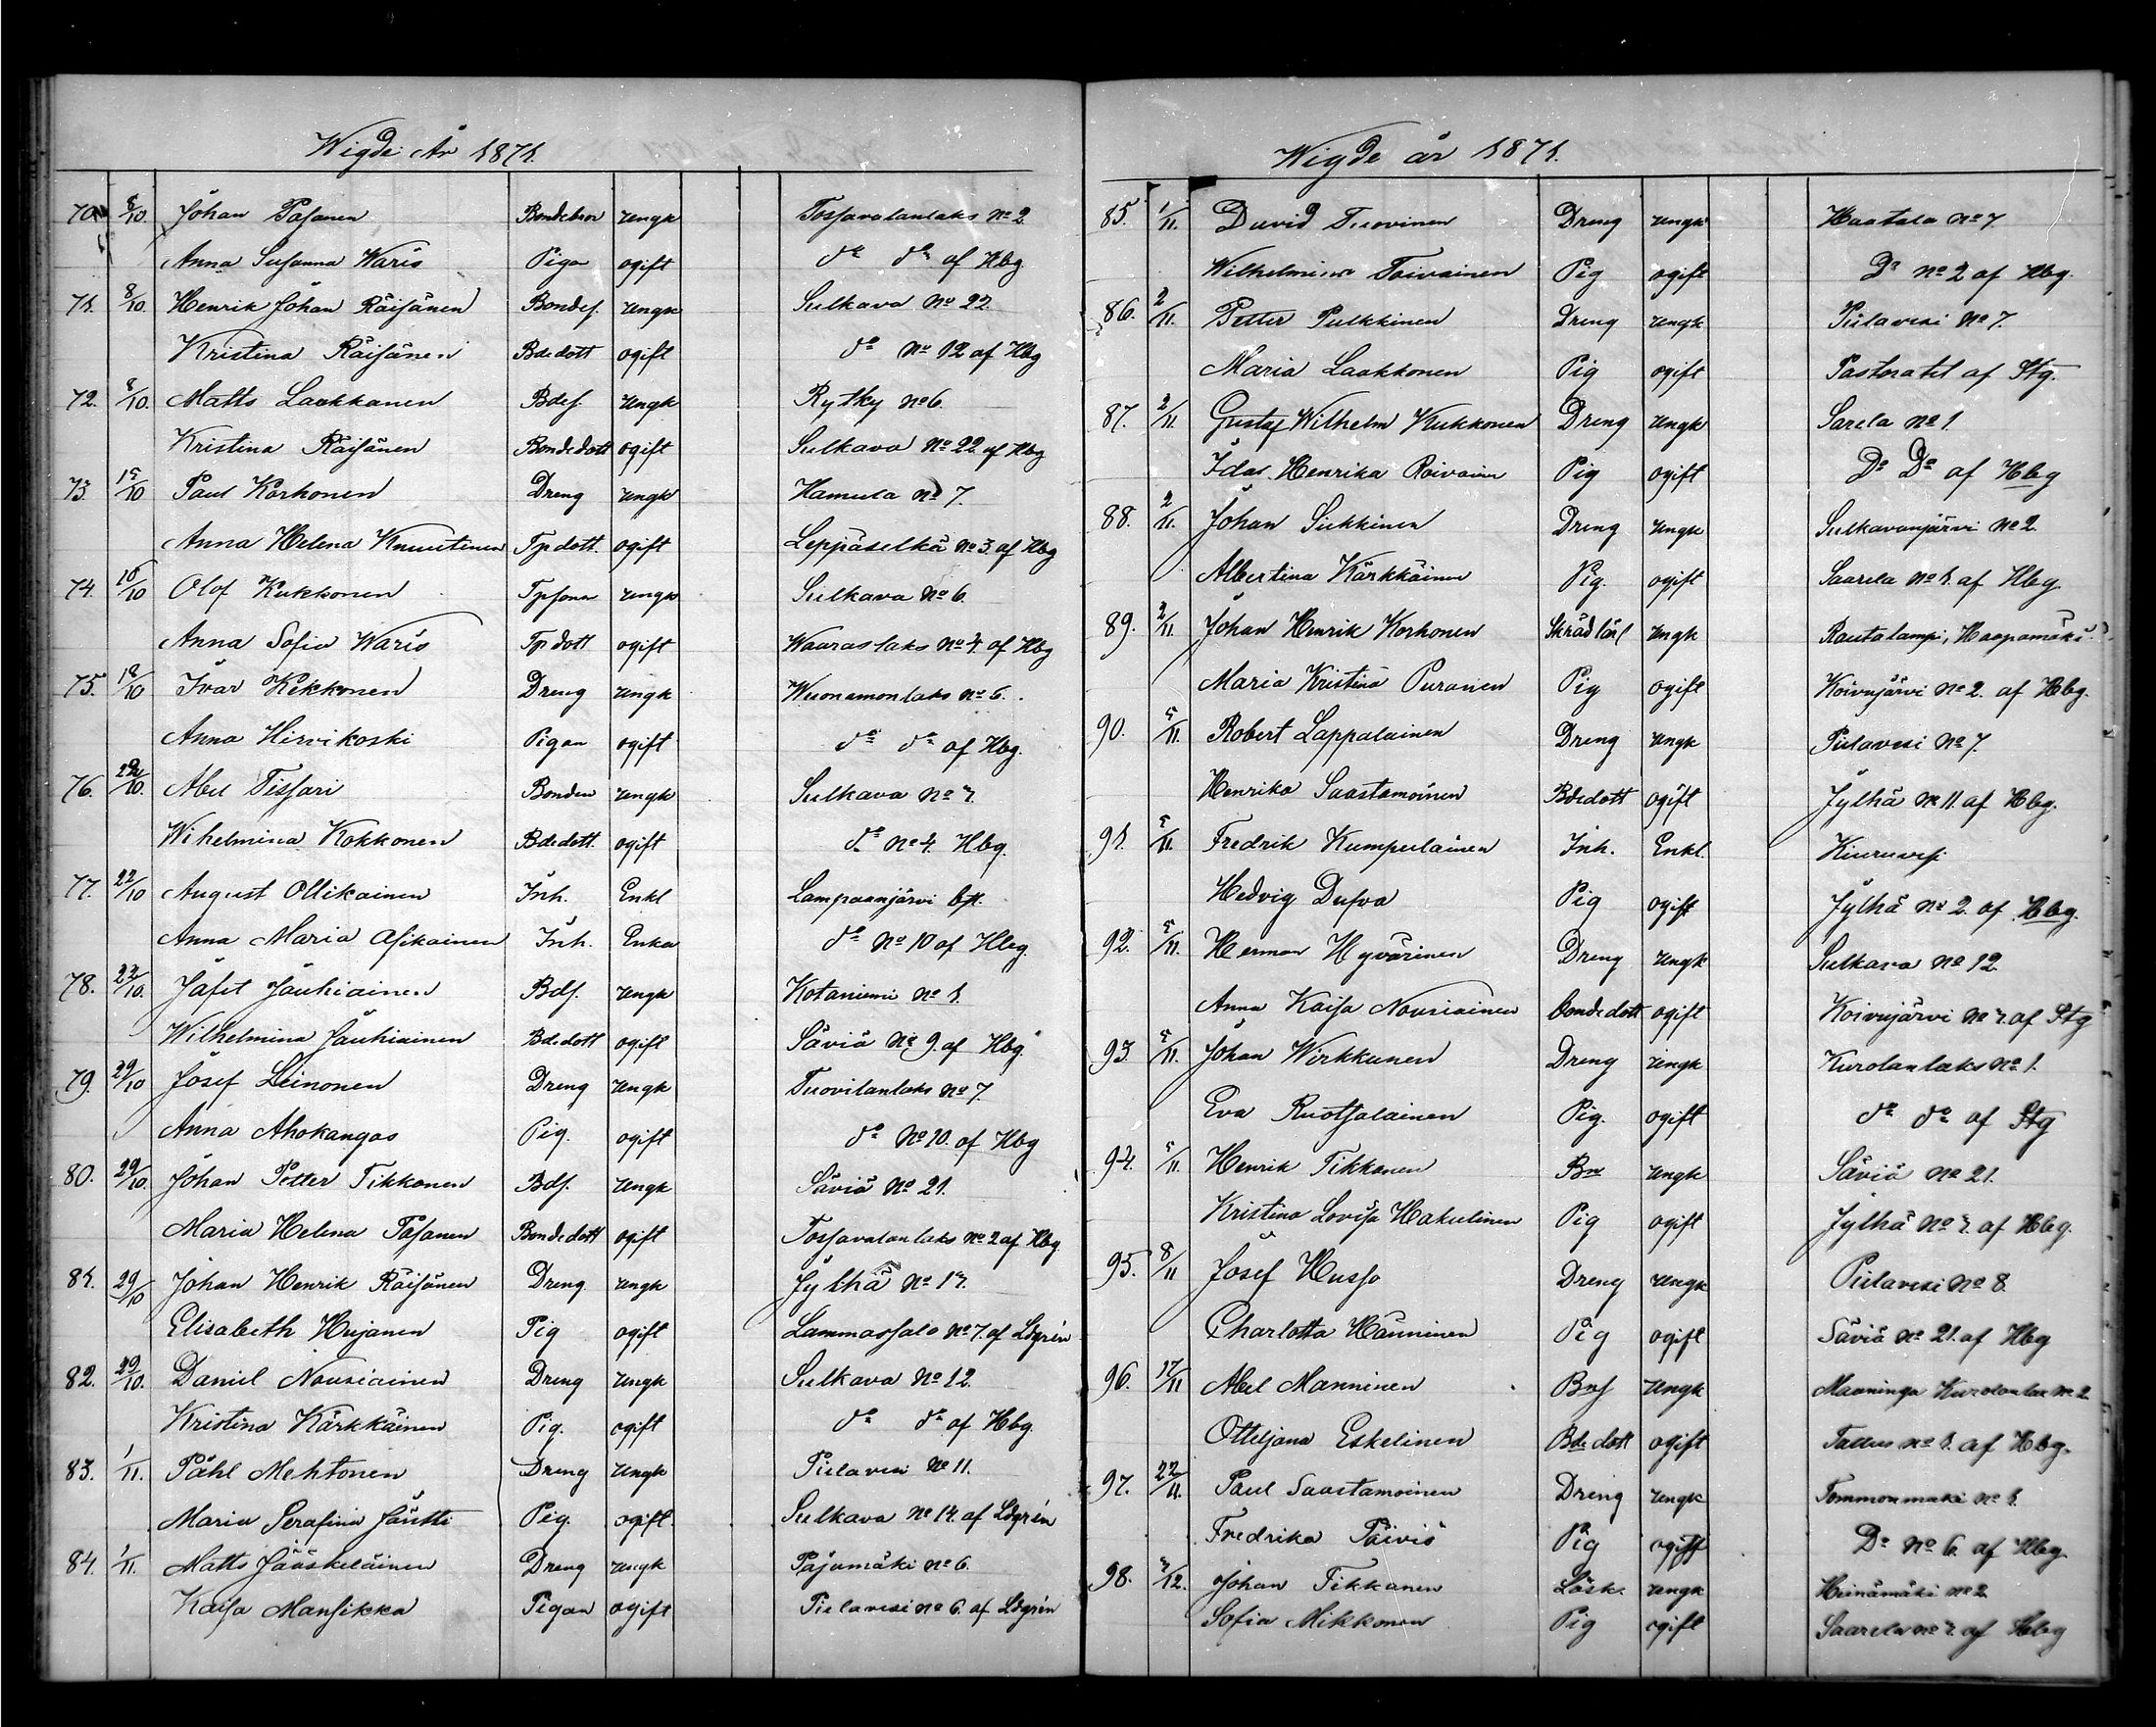 Wigde År 1871.
70. 8/10. Johan Pasanen Bondebror ungk Tossavalanlaks No 2.
Anna Susanna Waris Pigan ogift do do af Hbg.
71. 8/10. Henrik Johan Räisänen Bondes. ungk Sulkava No 22.
Kristina Räisänen Bdedott ogift do No 12 af Hbg
72. 8/10. Matts Laukkanen Bdes. ungk Rytky No 6.
Kristina Räisänen Bondedott ogift Sulkava No 22 af Hbg
73 15/10 Paul Korhonen Dreng ungk Hamula No 7.
Anna Helena Knuutinen Tpdott. ogift Leppäselkä No 3. af Hbg
74. 15/10 Olof Kukkonen Tpsonen ungk Sulkava No 6.
Anna Sofia Waris Tpdott ogift Waaraslaks No 4. af Hbg
75. 18/10 Ivar Kekkonen Dreng ungk Wuonamonlaks No 6.
Anna Hirvikoski Pigan ogift do do af Hbg.
76. 22/10. Abel Tissari Bonden ungk Sulkava No 7.
Wihelmina Kokkonen Bdedott. ogift do No 4. Hbg.
77. 22/10 August Ollikainen Inh. Enkl Lampaanjärvi
Anna Maria Asikainen Inh. Enka do No 10 af Hbg.
78. 22/10. Jafet Jauhiainen Bds. ungk Kotaniemi No 1.
Wilhelmina Jauhiainen Bdedott ogift Säviä No 9. af Hbg.
79. 29/10 Josef Leinonen Dreng ungk Tuovilanlaks No 7.
Anna Ahokangas Pig. ogift do No 10. af Hbg
80. 29/10. Johan Petter Tikkonen Bds. ungk Säviä No 21.
Maria Helena Pasanen Bondedott ogift Tossavalanlaks No 2 af Hbg.
81. 29/10 Johan Henrik Räisänen Dreng ungk Jylhä No 17.
Elisabeth Hujanen Pig ogift Lammassalo No 7. af Ldgrén
82. 29/10. Daniel Nousiainen Dreng ungk Sulkava No 12.
Kristina Kärkkäinen Pig. ogift do do af Hbg.
83. 1/11. Påhl Mehtonen Dreng ungk Pielavesi No 11.
Maria Serafina Jäntti Pig. ogift. Sulkava No 14. af Ldgrén
84. 1/11. Matts Jääskeläinen Dreng ungk Pajumäki No 6.
Kaisa Mansikka Pigan ogift Pielavesi No 6. af Ldgrén
Wigde år 1871.
85. 1/11. David Tuovinen Dreng ungk Haatala No 7.
Wilhelmina Toivainen Pig ogift Do No 2 af Hbg.
86. 2/11. Petter Pulkkinen Dreng ungk Pielavesi No 7.
Maria Laakkonen Pig ogift Pastoratet af Stg.
87. 2/11. Gustaf Wilhelm Kukkonen Dreng ungk Sarela No 1.
Ida Henrika Roivainen Pig ogift Do Do af Hbg
88. 2/11. Johan Siekkinen Dreng ungk Sulkavanjärvi No 2.
Albertina Kärkkäinen Pig. ogift Saarela No 1. af Hbg.
89. 2/11. Johan Henrik Korhonen Skrädlärl ungk Rautalampi, Haapamäki
Maria Kristina Puranen Pig ogift Koivujärvi No 2. af Hbg.
90. 5/11. Robert Lappalainen Dreng ungk Pielavesi No 7.
Henrika Saastamoinen Bdedott ogift Jylhä No 11. af Hbg.
91. 5/11. Fredrik Kumpulainen Inh. Enkl. Kiuruvesi
Hedvig Dufva Pig ogift Jylhä No 2. af Hbg.
92. 5/11. Herman Hyvärinen Dreng ungk Sulkava No 12.
Anna Kaisa Nousiainen bondedott ogift Koivujärvi No 7. af Stg
93. 5/11. Johan Wirkkunen Dreng ungk Kurolanlaks No 1.
Eva Ruotsalainen Pig. ogift do do af Stg
94. 5/11. Henrik Tikkanen Bn ungk Säviä No 21.
Kristina Lovisa Hakulinen Pig ogift Jylhä No 7. af Hbg.
95. 8/11 Josef Husso Dreng ungk Pielavesi No 8.
Charlotta Hänninen Pig ogift Säviä No 21. af Hbg
96. 17/11 Abel Manninen Bns ungk Maaninga Kurolanlax No 2
Otteljana Eskelinen Bdedott ogift Tallus No 1. af Hbg.
97. 22/11. Paul Saastamoinen Dreng ungk Tommonmäki No 1.
Fredrika Päiviö Pig ogift Do No 6. af Hbg.
98. 3/12. Johan Tikkanen Lösk. ungk Heinämäki No 2
Sofia Mikkonen Pig ogift Saarela No 7. af Hbg